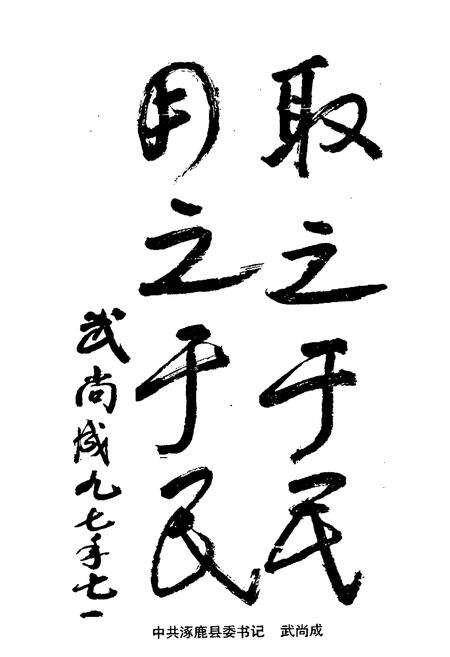 取之于民
用之于民
武尚成九七年七一
中共涿鹿县委书记 武尚成